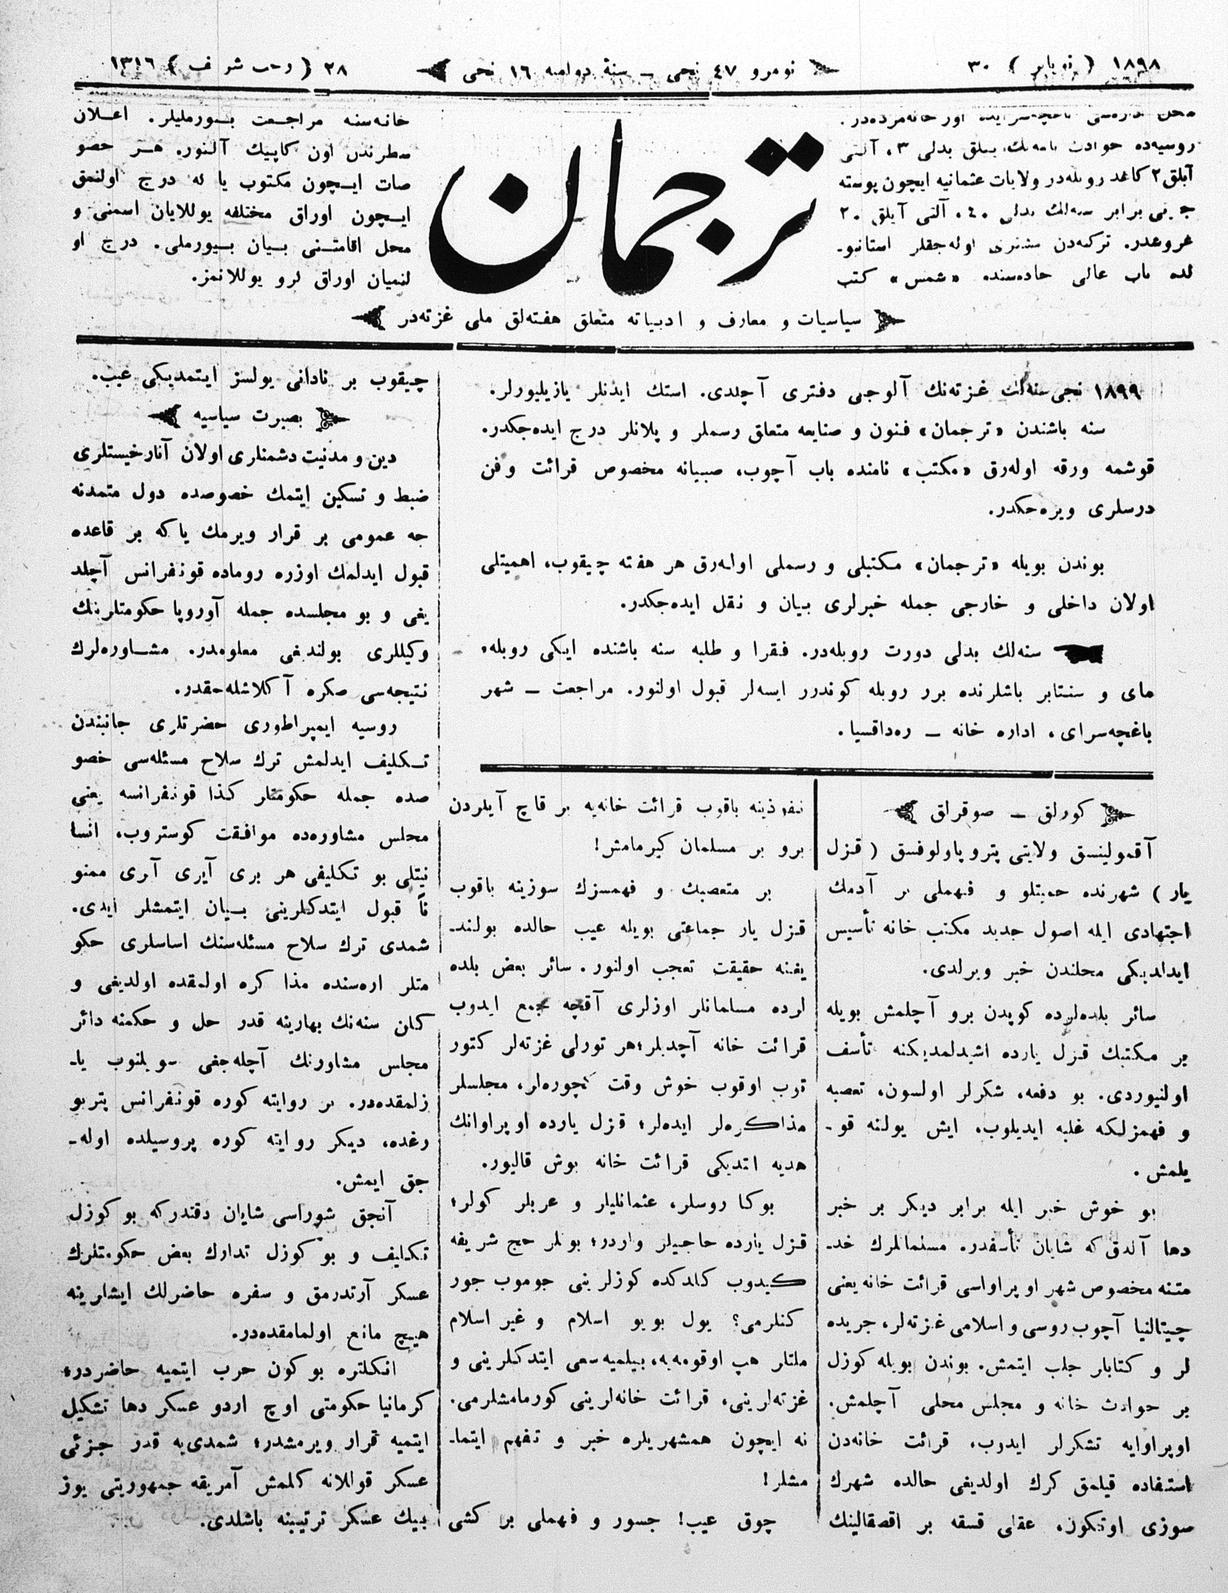 ١٨٩٨ ( نويابر ) ٣٠
نومرو ٤٧ نجی ــ سنهٔ دوامیه ١٦ نجی
٢٨ ( رجب شریف ) ١٣١٦
روسیه‌ده حوادث نامه‌نك ییللق بدلی ٣، آلتی
آیلق ٢ كاغد روبله‌در ولایات عثمانیه ایچون پوسته
برابر سنه‌لك بدلی ٤٠، آلتی آیلق ٢٠
غروعدر. تركه‌دن مشتری اوله‌جقلر استانبو ـ
لده باب عالی جاده‌سنده «شمس» كتب
ترجمان
خانه‌سنه مراجعت بیورملیلر. اعلان
سطرندن اون كاپیك آلنور. هر خصو
صات ایچون مكتوب یا له درج اولنمق
ایچون اوراق مختلفه یوللایان اسمنی و
محل اقامتنی بیان بیورملی. درج او
لنمیان اوراق كرو یوللانمز.
سیاسیات و معارف و ادبیاته متعلق هفته‌لق ملی غزته‌در
١٨٩٩ نجی سنه‌لك غزته‌نك آلوجی دفتری آچلدی. استك ایدنلر یازیلیورلر.
سنه باشندن «ترجمان» فنون و صنایعه متعلق رسملر و پلانلر درج ایده‌جكدر.
قوشمه ورقه اوله‌رق «مكتب» نامنده باب آچوب، صبیانه مخصوص قرائت وفن
درسلری ویره‌جكدر.
بوندن بویله «ترجمان» مكتبلی و رسملی اوله‌رق هر هفته چیقوب، اهمیتلی
اولان داخلی و خارجی جمله خبرلری بیان و نقل ایده‌جكدر.
سنه‌لك بدلی دورت روبله‌در. فقرا و طلبه سنه باشنده ایكی روبله،
مای و سنتابر باشلرنده برر روبله كوندرر ایسه‌لر قبول اولنور. مراجعت ــ شهر
باغچه‌سرای، اداره خانه ــ ره‌داقسیا.
كورلق ــ صوقراق
آقمولینسق ولایتی پترو پاولوفسق ( قزل
یار ) شهرنده حمیتلو و فهملی بر آدمك
اجتهادی ایله اصول جدید مكتب خانه تأسیس
ایدلدیكی محلندن خبر ویرلدی.
سائر بلده‌لرده كوپدن برو آچلمش بویله
بر مكتبك قزل یارده اشیدلمدیكنه تأسف
اولنیوردی. بو دفعه، شكرلر اولسون، تعصبه
و فهمزلكه غلبه ایدیلوب، ایش یولنه قو ـ
یلمش .
بو خوش خبر ایله برابر دیكر بر خبر
دها آلدق كه شایان تأسفدر. مسلمانلرك خد ـ
متنه مخصوص شهر اوپراواسی قرائت خانه یعنی
چیتالنیا آچوب روسی و اسلامی غزته‌لر، جریده
لر و كتابلر جلب ایتمش. بوندن بویله كوزل
بر حوادث خانه و مجلس محلی آچلمش.
اوپراوایه تشكرلر ایدوب، قرائت خانه‌دن
استفاده قیلمق كرك اولدیغی حالده شهرك
سوزی اوتكون، عقلی قسقه بر اقصقالینك
نفوذینه باقوب قرائت خانه‌یه بر قاچ آیلردن
برو بر مسلمان كیرمامش!
بر متعصبك و فهمسزك سوزینه باقوب
قزل یار جماعتی بویله عیب حالده بولند ـ
یغنه حقیقت تعجب اولنور. سائر بعض بلده
لرده مسلمانلر اوزلری آقچه جمع ایدوب
قرائت خانه آچدیلر؛ هر تورلی غزته‌لر كتور
توب اوقوب خوش وقت كچوره‌لر، مجلسلر
مذاكره‌لر ایده‌لر؛ قزل یارده اوپراوانك
هدیه ایتدیكی قرائت خانه بوش قالیور.
بوكا روسلر، عثمانلیلر و عربلر كولر؛
قزل یارده حاجیلر واردر؛ بونلر حج شریفه
كیدوب كلدكده كوزلرینی جوموب جور
كنلرمی؟ یول بویو اسلام و غیر اسلام
ملتلر هپ اوقومه‌یه، بیلمیه سعی ایتدكلرینی و
غزته‌لرینی، قرائت خانه‌لرینی كورمامشلرمی.
نه ایچون همشهریلره خبر و تفهم ایتما ـ
مشلر!
چوق عیب! جسور و فهملی بر كشی
چیقوب بر نادانی یولسز ایتمدیكی عیب.
بصیرت سیاسیه
دین و مدنیت دشمنلری اولان آنارخیستلری
ضبط و تسكین ایتمك خصوصده دول متمدنه
جه عمومی بر قرار ویرمك یا كه بر قاعده
قبول ایدلمك اوزره روماده قونفرانس آچلد
یغی و بو مجلسده جمله آوروپا حكومتلرینك
وكیللری بولندغی معلومدر. مشاوره‌لرك
نتیجه‌سی صكره آكلاشله‌جقدر.
روسیه ایمپراطوری حضرتلری جانبندن
تكلیف ایدلمش ترك سلاح مسئله‌سی خصو
صده جمله حكومتلر كذا قونفرانسه یعنی
محلس مشاوره‌ده موافقت كوستروب، انسا
نیتلی بو تكلیفی هر بری آیری آیری ممنو
ناً قبول ایتدكلرینی بیان ایتمشلر ایدی.
شمدی ترك سلاح مسئله‌سنك اساسلری حكو
متلر اره‌سنده مذاكره اولمقده اولدیغی و
كلان سنه‌نك بهارینه قدر حل و حكمنه دائر
مجلس مشاورنك آچله‌جغی سویلنوب یا ـ
زلمقده‌در. بر روایته كوره قونفرانس پتربو
رغده، دیكر روایته كوره بروسیلده اوله ـ
جق ایمش.
آنجق شوراسی شایان دقتدر كه بو كوزل
تكلیف و بو كوزل تدارك بعض حكومتلرك
عسكر آرتدرمق و سفره حاضرلك ایشلرینه
هیچ مانع اولمامقده‌در.
انكلتره بو كون حرب ایتمیه حاضردر؛
كرمانیا حكومتی اوچ اردو عسكر دها تشكیل
ایتمیه قرار ویرمشدر؛ شمدی‌یه قدر جزئی
عسكر قوللانه كلمش آمریقه جمهوریتی یوز
بیك عسكر ترتیبنه باشلدی.